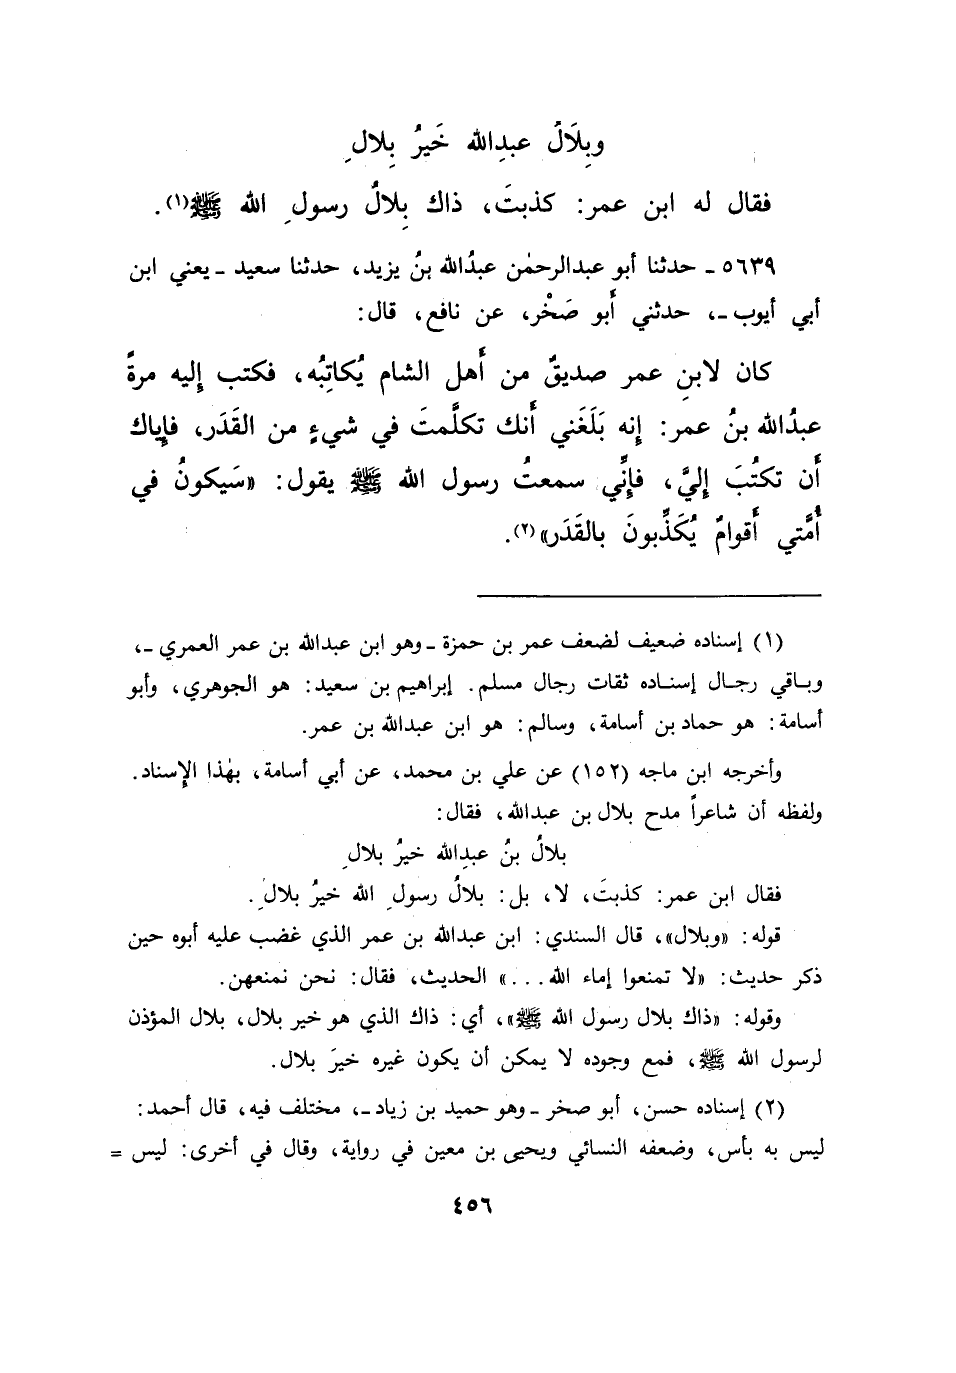 وبِلَالُ عبدِالله خَيرُ بِلالِ
فقال له ابن عمر: كذبتَ، ذاك بِلالُ رسولِ الله ﷺ(١).
٥٦٣٩ ـ حدثنا أبو عبدالرحمٰن عبدُالله بنُ يزيد، حدثنا سعيد ـ يعني ابن
أبي أيوب ـ، حدثني أَبو صَخْر، عن نافع، قال:
كان لابنِ عمر صديقٌ من أَهل الشام يُكاتِبُه، فكتب إِليه مرةً
عبدُالله بنُ عمر: إِنه بَلَغَني أَنك تكلَّمتَ في شيءٍ من القَدَر، فإِياك
أَن تكتُبَ إِليَّ، فإِنِّي سمعتُ رسول الله ﷺ يقول: «سَيكونُ في
أُمَّتي أَقوامٌ يُكَذِّبونَ بالقَدَر»(٢).
(١) إسناده ضعيف لضعف عمر بن حمزة ـ وهو ابن عبدالله بن عمر العمري ـ،
وبـاقي رجـال إسنـاده ثقات رجال مسلم. إبراهيم بن سعيد: هو الجوهري، وأبو
أسامة: هو حماد بن أسامة، وسالم: هو ابن عبدالله بن عمر.
وأخرجه ابن ماجه (١٥٢) عن علي بن محمد، عن أبي أسامة، بهٰذا الإسناد.
ولفظه أن شاعراً مدح بلال بن عبدالله، فقال:
بلالُ بنُ عبدِالله خيرُ بلالِ
فقال ابن عمر: كذبتَ، لا، بل: بلالُ رسولِ الله خيرُ بلالِ.
قوله: «وبلال»، قال السندي: ابن عبدالله بن عمر الذي غضب عليه أبوه حين
ذكر حديث: «لا تمنعوا إماء الله...» الحديث، فقال: نحن نمنعهن.
وقوله: «ذاك بلال رسول الله ﷺ»، أي: ذاك الذي هو خير بلال، بلال المؤذن
لرسول الله ﷺ، فمع وجوده لا يمكن أن يكون غيره خيرَ بلال.
(٢) إسناده حسن، أبو صخر ـ وهو حميد بن زياد ـ، مختلف فيه، قال أحمد:
ليس به بأس، وضعفه النسائي ويحيى بن معين في رواية، وقال في أخرى: ليس =
٤٥٦